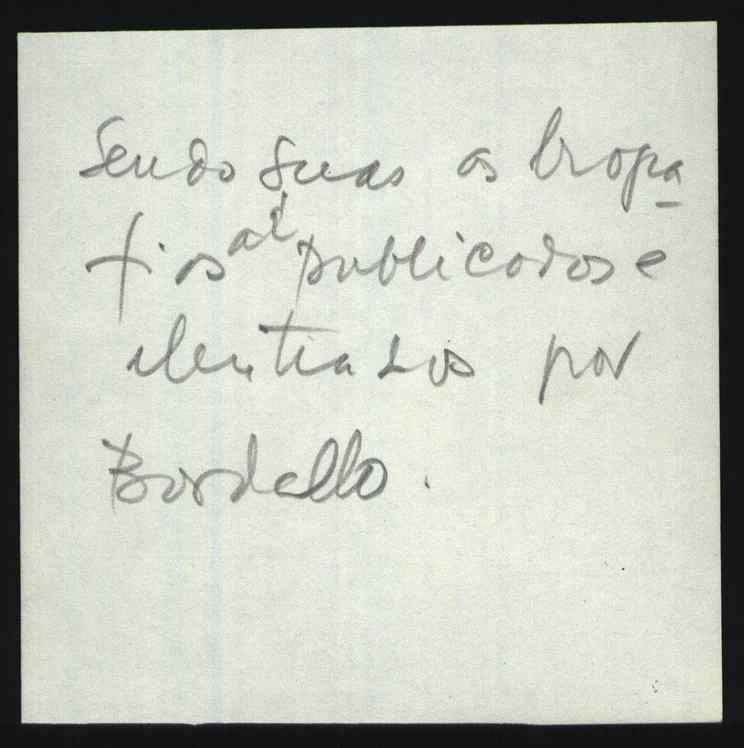 Sendo suas as bropa
fias aí publicados e
identiados por
Bordallo.